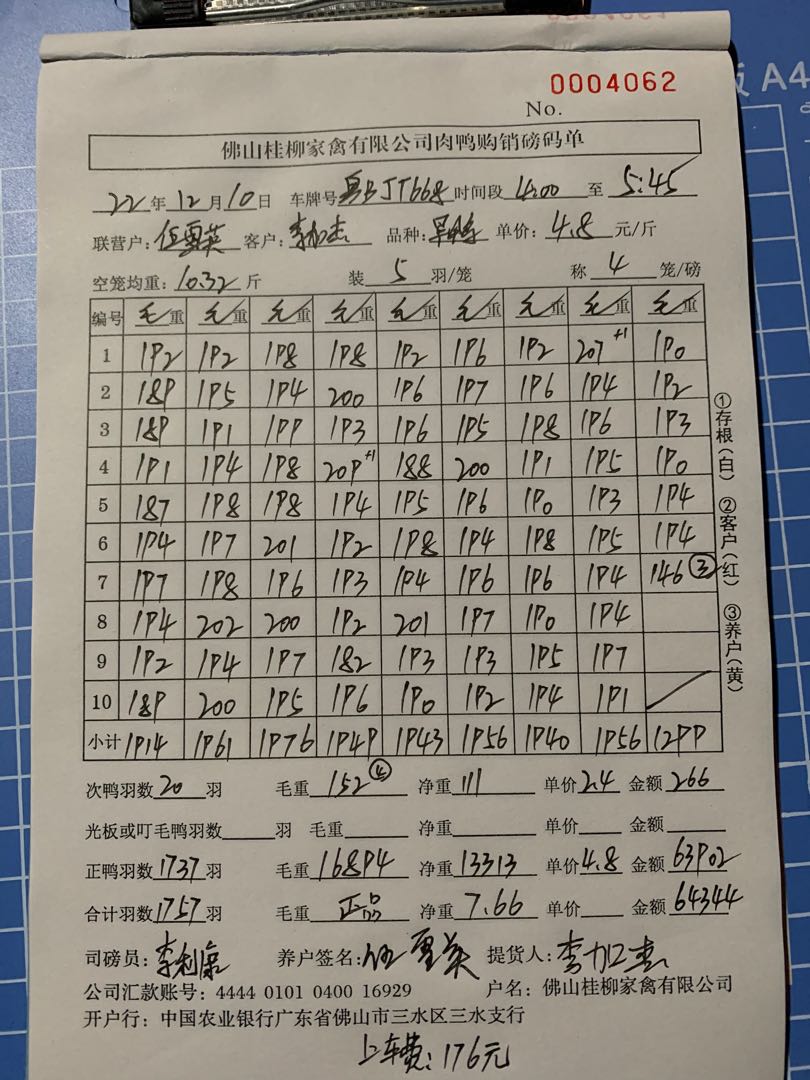 板 A4
0004062
No.
佛山桂柳家禽有限公司肉鸭购销磅码单
22年12月10日 车牌号粤BJT668时间段4:00至5:45
联营户:伍雪英 客户:李加杰 品种: 单价:4.8元/斤
空笼均重:10.32斤 装5羽/笼 称4笼/磅
编号 毛重 毛重 毛重 毛重 毛重 毛重 毛重 毛重 毛重
1 192 192 198 198 192 196 192 207+1 190
2 189 195 194 200 196 197 196 194 192
3 189 191 199 193 196 195 198 196 193
4 191 194 198 209+1 188 200 191 195 190
5 187 198 198 194 195 196 190 193 194
6 194 197 201 192 198 194 198 195 194
7 197 198 196 193 194 196 196 194 146③
8 194 202 200 192 201 197 190 194
9 192 194 197 182 193 193 195 197
10 189 200 195 196 190 192 194 191 /
小计 1914 1961 1976 1949 1943 1956 1940 1956 1299
①存根(白) ②客户(红) ③养户(黄)
次鸭羽数20羽 毛重152④ 净重111 单价2.4 金额266
光板或叮毛鸭羽数 羽 毛重 净重 单价 金额
正鸭羽数1737羽 毛重16894 净重13313 单价4.8 金额63902
合计羽数1757羽 毛重正品 净重7.66 单价 金额64344
司磅员:李利康 养户签名:伍雪英 提货人:李加杰
公司汇款账号:4444 0101 0400 16929 户名:佛山桂柳家禽有限公司
开户行:中国农业银行广东省佛山市三水区三水支行
上车费:176元